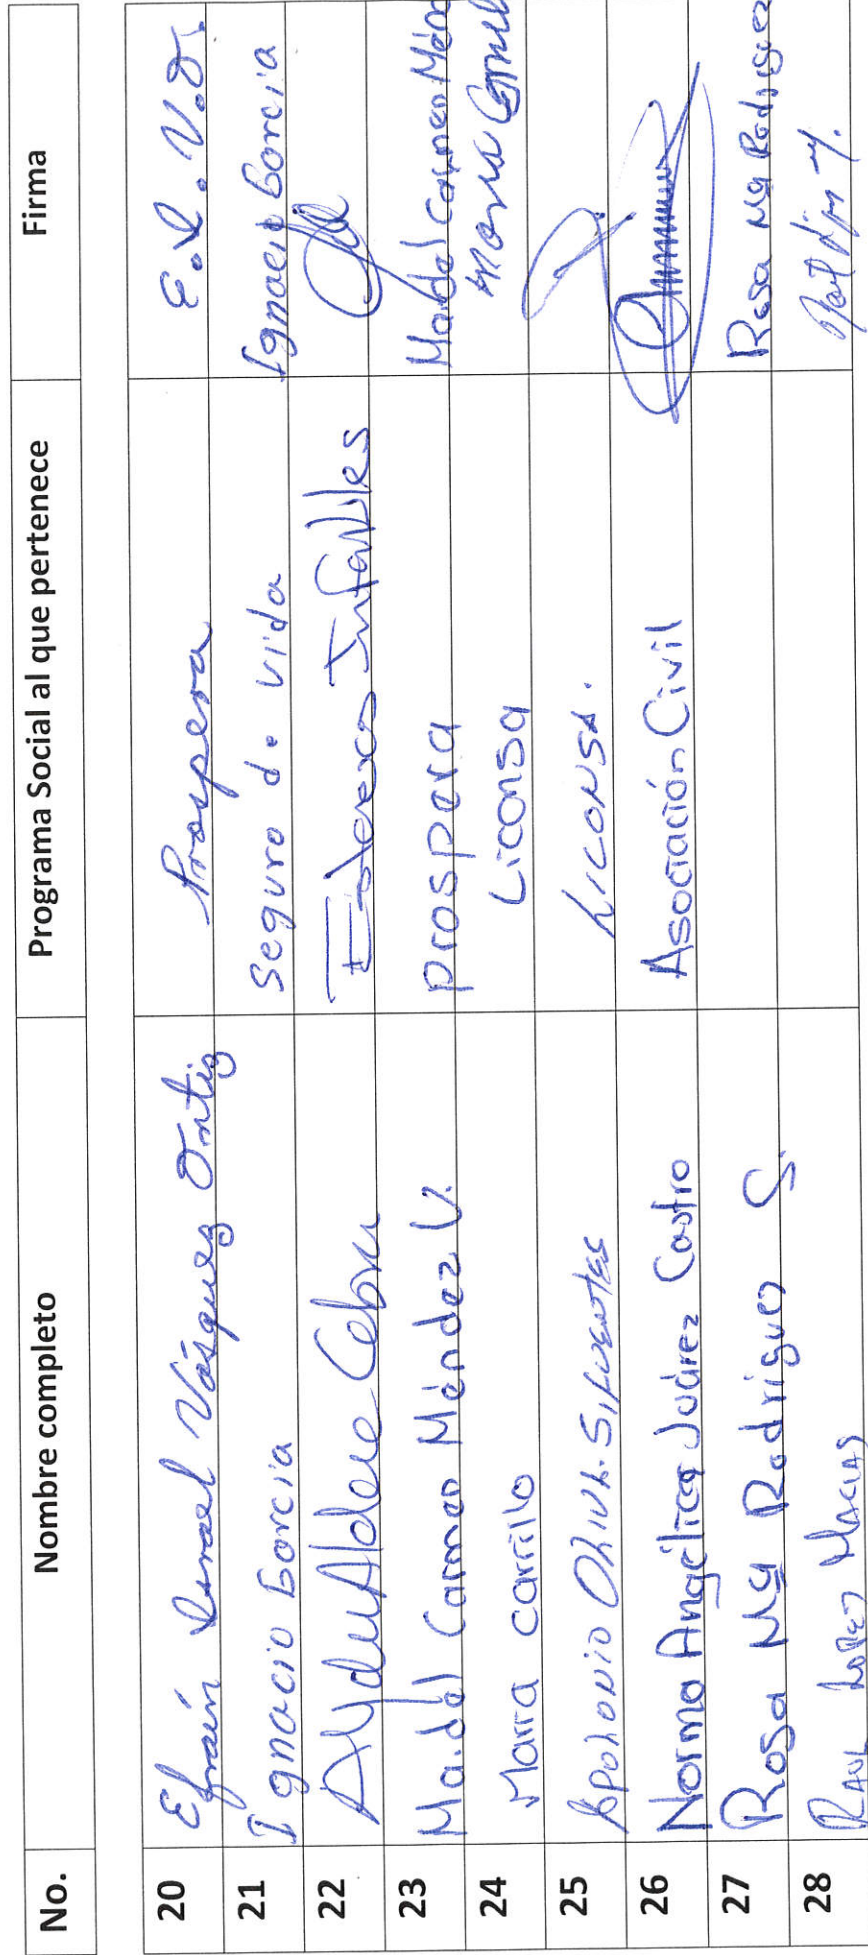 No. Nombre completo Programa Social al que pertenece Firma
20 Efraín Israel Vásquez Ortiz Prospera E.I.V.O.
21 Ignacio Garcia Seguro de vida Ignacio Garcia
22 Infantiles
23 Ma. del Carmen Méndez V. prospera Ma del Carmen Ménd
24 Maria Carrillo Liconsa Maria
25 Apolonio Oliva. Sifuentes LICONSA.
26 Norma Angélica Juárez Castro Asociación Civil
27 Rosa Ma Rodriguez S. Rosa Ma Rodriguez
28 RAUL LOPEZ MACIAS